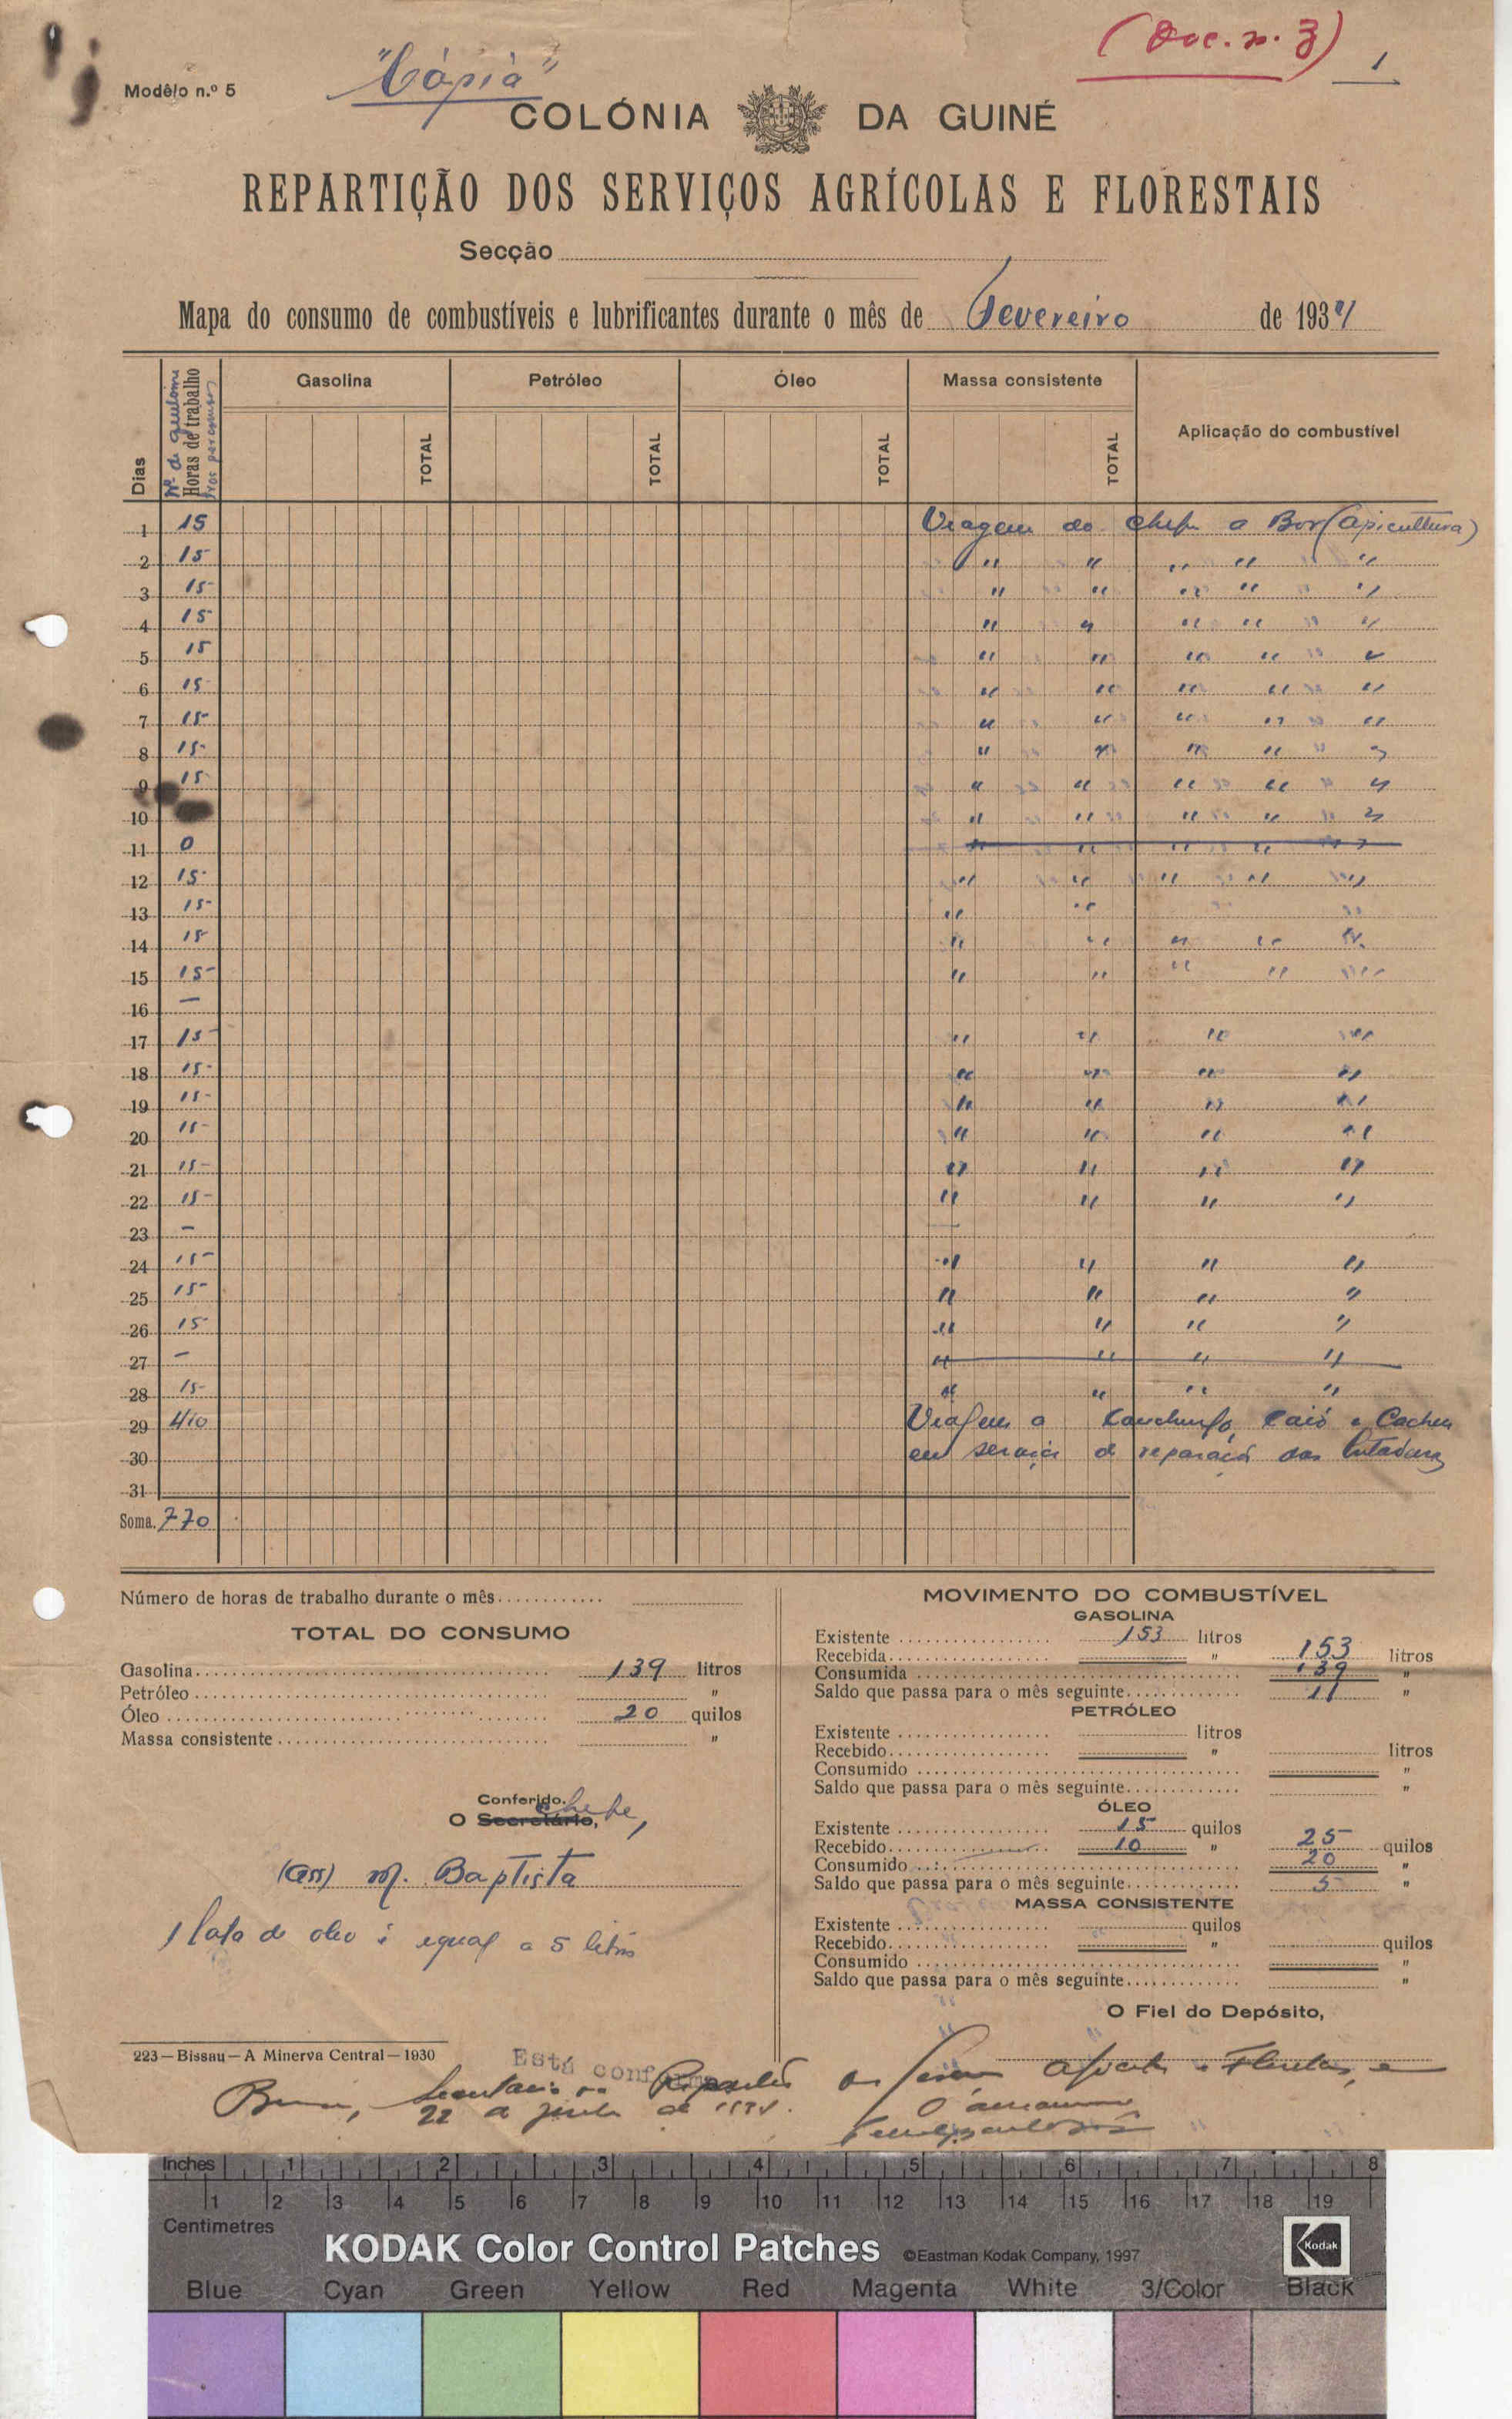 (Doc. n. 3) 1
"Cópia"
Modêlo n.º 5
COLÓNIA DA GUINÉ
REPARTIÇÃO DOS SERVIÇOS AGRÍCOLAS E FLORESTAIS
Secção
Mapa do consumo de combustíveis e lubrificantes durante o mês de Fevereiro de 193
Dias Nº de quilómetros percorridos Horas de trabalho Gasolina Petróleo Óleo Massa consistente Aplicação do combustível
TOTAL TOTAL TOTAL TOTAL
1 15 Viagem do chefe a Bor (apicultura)
2 15 " " " " "
3 15 " " " " "
4 15 " " " " "
5 15 " " " " "
6 15 " " " " "
7 15 " " " " "
8 15 " " " " "
9 15 " " " " "
10 " " " " "
11 0 " " " " "
12 15 " " " " "
13 15 " "
14 15 " " " " "
15 15 " " " " "
16 —
17 15 " " " "
18 15 " " " "
19 15 " " " "
20 15 " " " "
21 15 " " " "
22 15 " " " "
23 —
24 15 " " " "
25 15 " " " "
26 15 " " " "
27 — " " " "
28 15 " " " "
29 410 Viagem a Canchungo, Caió e Cacheu
30 em serviço de reparação das
31
Soma. 770
Número de horas de trabalho durante o mês
TOTAL DO CONSUMO
Gasolina 139 litros
Petróleo "
Óleo 20 quilos
Massa consistente "
Conferido.
O Secretário, chefe,
(ass) M. Baptista
1 lata de oleo é equal a 5 litros
MOVIMENTO DO COMBUSTÍVEL
GASOLINA
Existente 153 litros
Recebida " 153 litros
Consumida 139 "
Saldo que passa para o mês seguinte 11 "
PETRÓLEO
Existente litros
Recebido " litros
Consumido "
Saldo que passa para o mês seguinte "
ÓLEO
Existente 15 quilos
Recebido 10 " 25 quilos
Consumido 20 "
Saldo que passa para o mês seguinte 5 "
MASSA CONSISTENTE
Existente quilos
Recebido " quilos
Consumido "
Saldo que passa para o mês seguinte "
O Fiel do Depósito,
223—Bissau—A Minerva Central—1930
Está conforme
22 de
Inches 1 2 3 4 5 6 7 8
1 2 3 4 5 6 7 8 9 10 11 12 13 14 15 16 17 18 19
Centimetres
KODAK Color Control Patches ©Eastman Kodak Company, 1997 Kodak
Blue Cyan Green Yellow Red Magenta White 3/Color Black